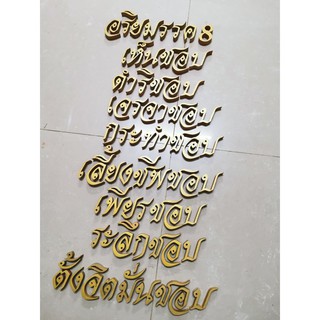 อริยมรรค 8
เห็นชอบ
ดำริชอบ
เจรจาชอบ
กระทำชอบ
เลี้ยงชีพชอบ
เพียรชอบ
ระลึกชอบ
ตั้งจิตมั่นชอบ